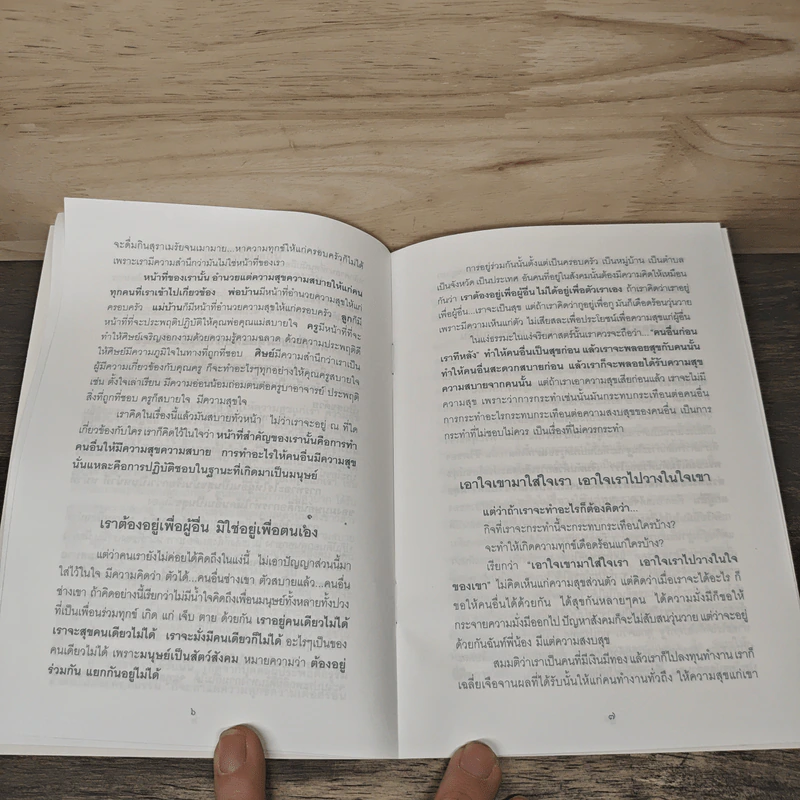 จะดื่มกินสุราเมรัยจนเมามาย...หาความทุกข์ให้แก่ครอบครัวก็ไม่ได้
เพราะเรามีความสำนึกว่ามันไม่ใช่หน้าที่ของเรา
หน้าที่ของเรานั้น อำนวยแต่ความสุขความสบายให้แก่คน
ทุกคนที่เราเข้าไปเกี่ยวข้อง พ่อบ้านมีหน้าที่อำนวยความสุขให้แก่
ครอบครัว แม่บ้านก็มีหน้าที่อำนวยความสุขให้แก่ครอบครัว ลูกก็มี
หน้าที่ที่จะประพฤติปฏิบัติให้คุณพ่อคุณแม่สบายใจ ครูมีหน้าที่ที่จะ
ทำให้ศิษย์เจริญงอกงามด้วยความรู้ความฉลาด ด้วยความประพฤติดี
ให้ศิษย์มีความภูมิใจในทางที่ถูกที่ชอบ ศิษย์มีความสำนึกว่าเราเป็น
ผู้มีความเกี่ยวข้องกับคุณครู ก็จะทำอะไรๆทุกอย่างให้คุณครูสบายใจ
เช่น ตั้งใจเล่าเรียน มีความอ่อนน้อมถ่อมตนต่อครูบาอาจารย์ ประพฤติ
สิ่งที่ถูกที่ชอบ ครูก็สบายใจ มีความสุขใจ
เราคิดในเรื่องนี้แล้วมันสบายทั่วหน้า ไม่ว่าเราจะอยู่ ณ ที่ใด
เกี่ยวข้องกับใคร เราก็คิดไว้ในใจว่า หน้าที่สำคัญของเรานั้นคือการทำ
คนอื่นให้มีความสุขความสบาย การทำอะไรให้คนอื่นมีความสุข
นั่นแหละคือการปฏิบัติชอบในฐานะที่เกิดมาเป็นมนุษย์
เราต้องอยู่เพื่อผู้อื่น มิใช่อยู่เพื่อตนเอง
แต่ว่าคนเรายังไม่ค่อยได้คิดถึงในแง่นี้ ไม่เอาปัญญาส่วนนี้มา
ใส่ไว้ในใจ มีความคิดว่า ตัวได้...คนอื่นช่างเขา ตัวสบายแล้ว...คนอื่น
ช่างเขา ถ้าคิดอย่างนี้เรียกว่าไม่มีน้ำใจคิดถึงเพื่อนมนุษย์ทั้งหลายทั้งปวง
ที่เป็นเพื่อนร่วมทุกข์ เกิด แก่ เจ็บ ตาย ด้วยกัน เราอยู่คนเดียวไม่ได้
เราจะสุขคนเดียวไม่ได้ เราจะมั่งมีคนเดียวก็ไม่ได้ อะไรๆเป็นของ
คนเดียวไม่ได้ เพราะมนุษย์เป็นสัตว์สังคม หมายความว่า ต้องอยู่
ร่วมกัน แยกกันอยู่ไม่ได้
๖
การอยู่ร่วมกันนั้นตั้งแต่เป็นครอบครัว เป็นหมู่บ้าน เป็นตำบล
เป็นจังหวัด เป็นประเทศ อันคนที่อยู่ในสังคมนั้นต้องมีความคิดให้เหมือน
กันว่า เราต้องอยู่เพื่อผู้อื่น ไม่ได้อยู่เพื่อตัวเราเอง ถ้าเราคิดว่าเราอยู่
เพื่อผู้อื่น...เราจะเป็นสุข แต่ถ้าเราคิดว่ากูอยู่เพื่อกู มันก็เดือดร้อนวุ่นวาย
เพราะมีความเห็นแก่ตัว ไม่เสียสละเพื่อประโยชน์เพื่อความสุขแก่ผู้อื่น
ในแง่ธรรมะในแง่จริยศาสตร์นั้นเราควรจะถือว่า..."คนอื่นก่อน
เราทีหลัง" ทำให้คนอื่นเป็นสุขก่อน แล้วเราจะพลอยสุขกับคนนั้น
ทำให้คนอื่นสะดวกสบายก่อน แล้วเราก็จะพลอยได้รับความสุข
ความสบายจากคนนั้น แต่ถ้าเราเอาความสุขเสียก่อนแล้ว เราจะไม่มี
ความสุข เพราะว่าการกระทำเช่นนั้นมันกระทบกระเทือนต่อคนอื่น
การกระทำอะไรกระทบกระเทือนต่อความสงบสุขของคนอื่น เป็นการ
กระทำที่ไม่ชอบไม่ควร เป็นเรื่องที่ไม่ควรกระทำ
เอาใจเขามาใส่ใจเรา เอาใจเราไปวางในใจเขา
แต่ว่าถ้าเราจะทำอะไรก็ต้องคิดว่า...
กิจที่เราจะกระทำนี้จะกระทบกระเทือนใครบ้าง?
จะทำให้เกิดความทุกข์เดือดร้อนแก่ใครบ้าง?
เรียกว่า "เอาใจเขามาใส่ใจเรา เอาใจเราไปวางในใจ
ของเขา" ไม่คิดเห็นแก่ความสุขส่วนตัว แต่คิดว่าเมื่อเราจะได้อะไร ก็
ขอให้คนอื่นได้ด้วยกัน ได้สุขกันหลายๆคน ได้ความมั่งมีก็ขอให้
กระจายความมั่งมีออกไป ปัญหาสังคมก็จะไม่สับสนวุ่นวาย แต่ว่าจะอยู่
ด้วยกันฉันท์พี่น้อง มีแต่ความสงบสุข
สมมติว่าเราเป็นคนที่มีเงินมีทอง แล้วเราก็ไปลงทุนทำงาน เราก็
เฉลี่ยเจือจานผลที่ได้รับนั้นให้แก่คนทำงานทั่วถึง ให้ความสุขแก่เขา
๗